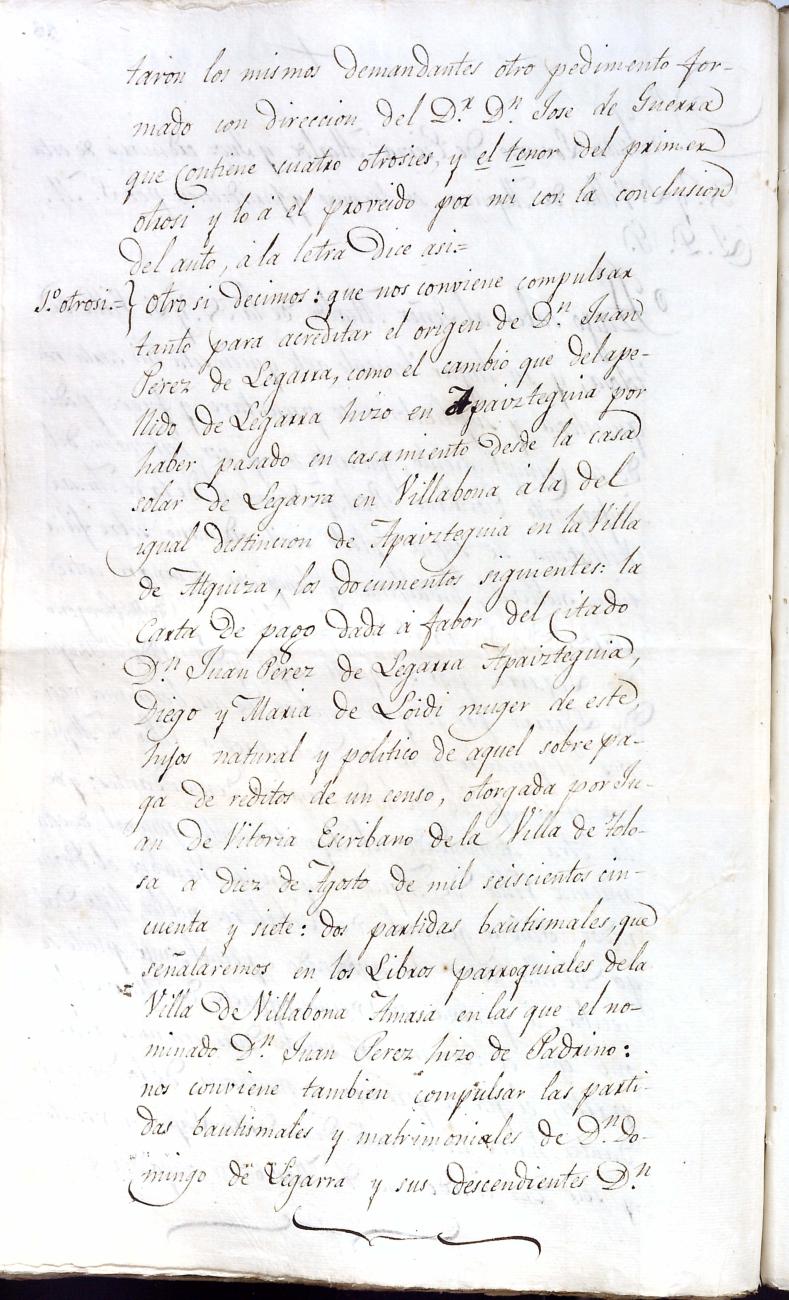 taron los mismos demandantes otro pedimento for-
mado con direccion del D.r D.n Jose de Guerra
que contiene cuatro otrosies, y el tenor del primer
otrosi y lo á él proveido por mi con la conclusion
del auto, á la letra dice asi=
1.º otrosi.= } otro si decimos: que nos conviene compulsar
tanto para acreditar el origen de D.n Juan
Perez de Legarra, como el cambio que del ape-
llido de Legarra hizo en Apaizteguia por
haber pasado en casamiento desde la casa
solar de Legarra en Villabona á la del
igual distincion de Apaizteguia en la Villa
de Alquiza, los documentos siguientes: la
Carta de pago dada á fabor del citado
D.n Juan Perez de Legarra Apaizteguia,
Diego y Maria de Loidi muger de este,
hijos natural y politico de aquel sobre pa-
ga de reditos de un censo, otorgada por Ju-
an de Vitoria Escribano de la Villa de Tolo-
sa a diez de Agosto de mil seiscientos cin-
cuenta y siete: dos partidas bautismales, que
señalaremos en los Libros parroquiales de la
Villa de Villabona Amasa en las que el no-
minado D.n Juan Perez hizo de Padrino:
nos conviene tambien compulsar las parti-
das bautismales y matrimoniales de D.n Do-
mingo de Legarra y sus descendientes D.n